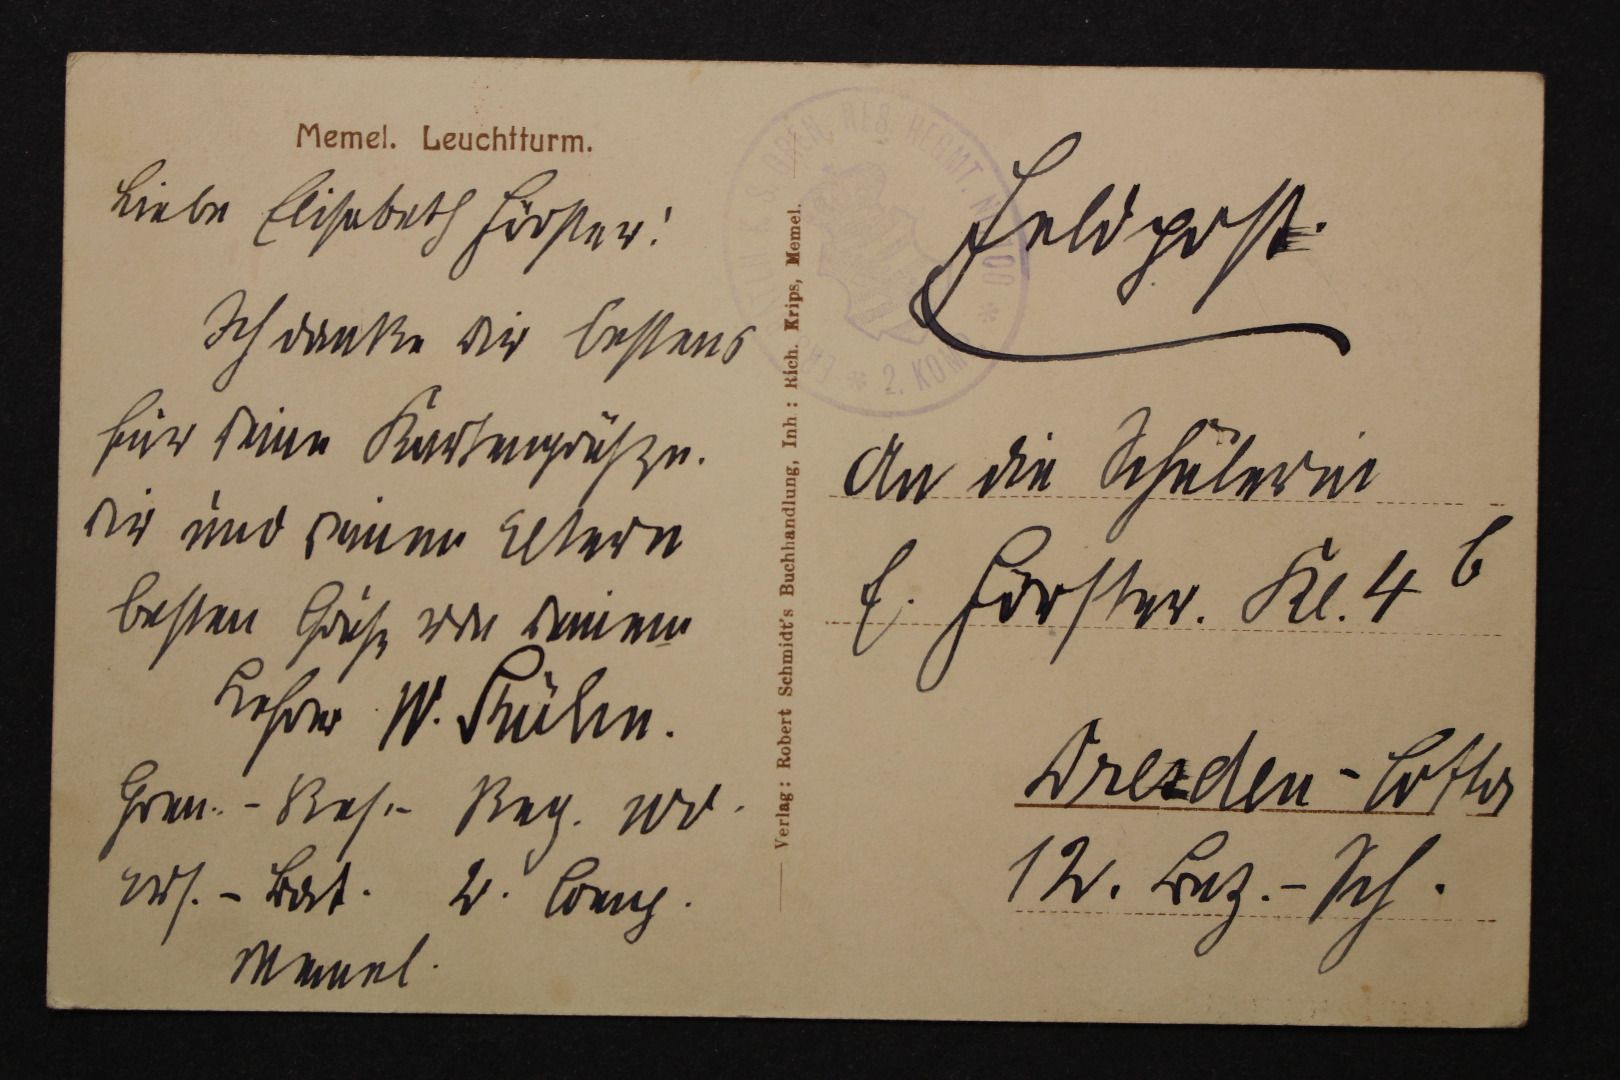 Memel. Leuchtturm.
Liebe Elisabeth Förster!
Ich danke dir bestens
für deine Kartengrüße.
Dir und deinen Eltern
besten Gruß von deinem
Lehrer W.
Gren.-Res.-Reg. 100.
Ers.-Bat. 2. Comp.
Memel.
Verlag: Robert Schmidt's Buchhandlung, Inh: Rich. Krips, Memel.
K. S. GREN. RES. REGMT. N 100 * 2. KOMP. *
Feldpost.
An die Schülerin
E. Förster. Kl. 4 b
Dresden - Cotta
12. Bez.-Sch.